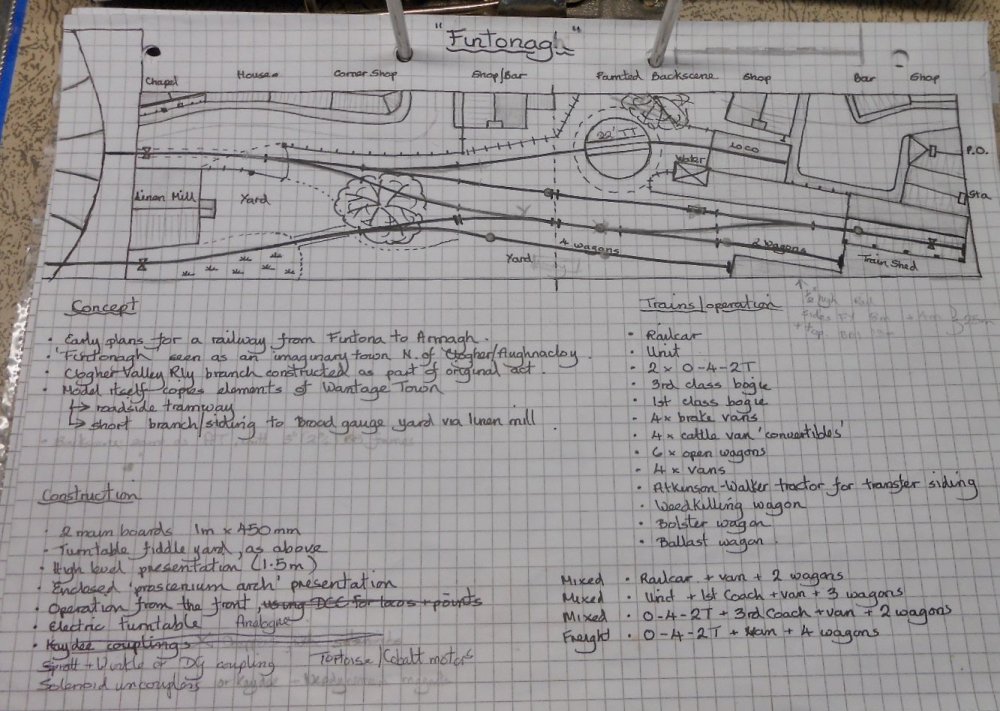 "Fintonagh"
Chapel House Corner Shop Shop/Bar Painted Backscene Shop Bar Shop
22" TT
Loco
P.O.
Water
Linen Mill
Yard
Sta.
4 wagons
2 wagons
Yard
Train Shed
Concept
· Early plans for a railway from Fintona to Armagh.
· 'Fintonagh' seen as an imaginary town N. of Clogher/Aughnacloy.
· Clogher Valley Rly branch constructed as part of original act.
· Model itself copies elements of Wantage Town
↳ roadside tramway
↳ short branch/siding to broad gauge yard via linen mill.
Construction
· 2 main boards 1m x 450mm
· Turntable fiddle yard, as above
· High level presentation (1.5m)
· Enclosed 'proscenium arch' presentation
· Operation from the front, using DCC for locos + points
· Electric turntable Analogue
· Kaydee couplings
Spratt + Winkle or DG coupling Tortoise/Cobalt motors
Solenoid uncouplers or Kaydee
Trains/operation
· Railcar
· Unit
· 2 x 0-4-2T
· 3rd class bogie
· 1st class bogie
· 4 x brake vans
· 4 x cattle van 'convertibles'
· 6 x open wagons
· 4 x vans
· Atkinson-Walker tractor for transfer siding
· Weedkilling wagon
· Bolster wagon
· Ballast wagon.
Mixed · Railcar + van + 2 wagons
Mixed · Unit + 1st Coach + van + 3 wagons
Mixed · 0-4-2T + 3rd Coach + van + 2 wagons
Freight · 0-4-2T + van + 4 wagons